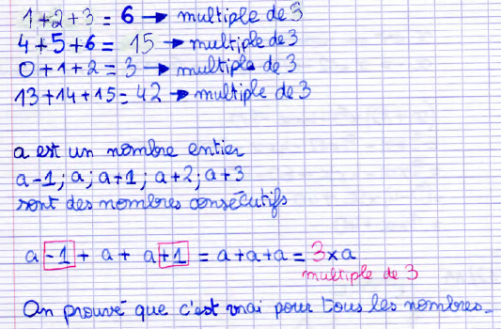 1+2+3 = 6 → multiple de 3
4+5+6 = 15 → multiple de 3
0+1+2 = 3 → multiple de 3
13+14+15 = 42 → multiple de 3
a est un nombre entier
a-1; a; a+1; a+2; a+3
sont des nombres consécutifs
a -1 + a + a +1 = a+a+a = 3×a
multiple de 3
On prouvé que c'est vrai pour tous les nombres.